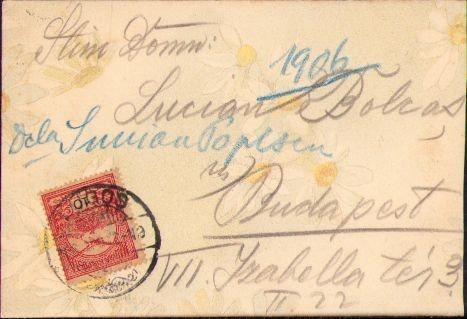 Stim Domn:
1906
Lucian Bolcaș
dela Simion Popescu
în
Budapest
VII. Izabella tér 3.
II 22